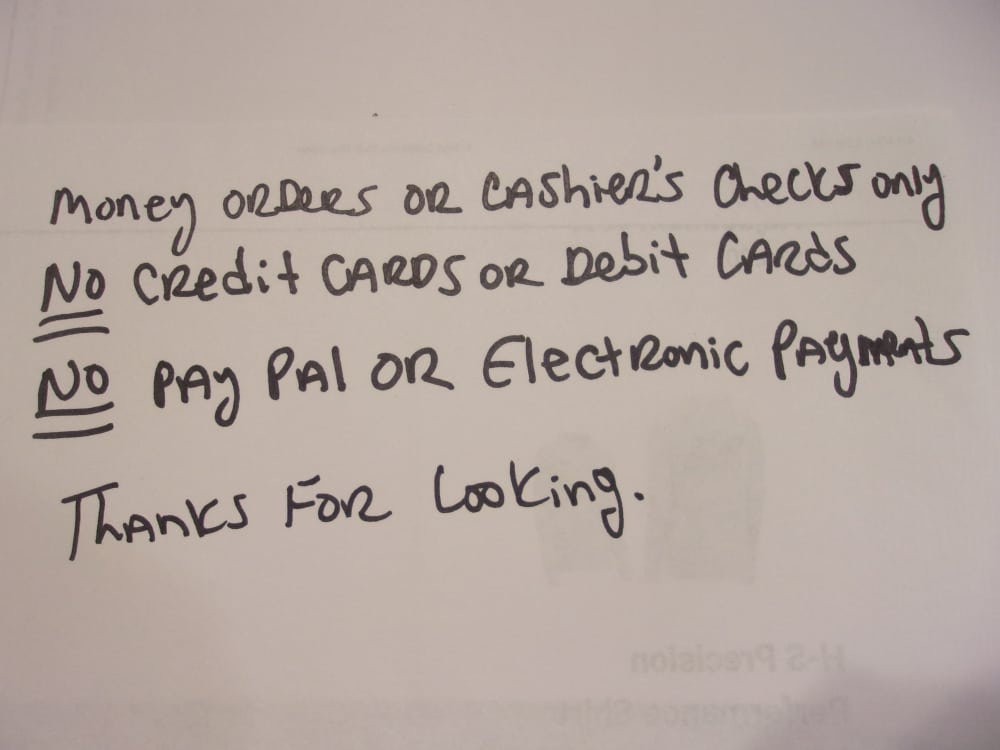 Money ORDERS OR CASHIER'S Checks only
NO CREdit CARDS OR Debit CARds
NO PAY PAl OR ElectRonic PAYments
THANKS FOR Looking.
H-S Precision
Performance Shirt